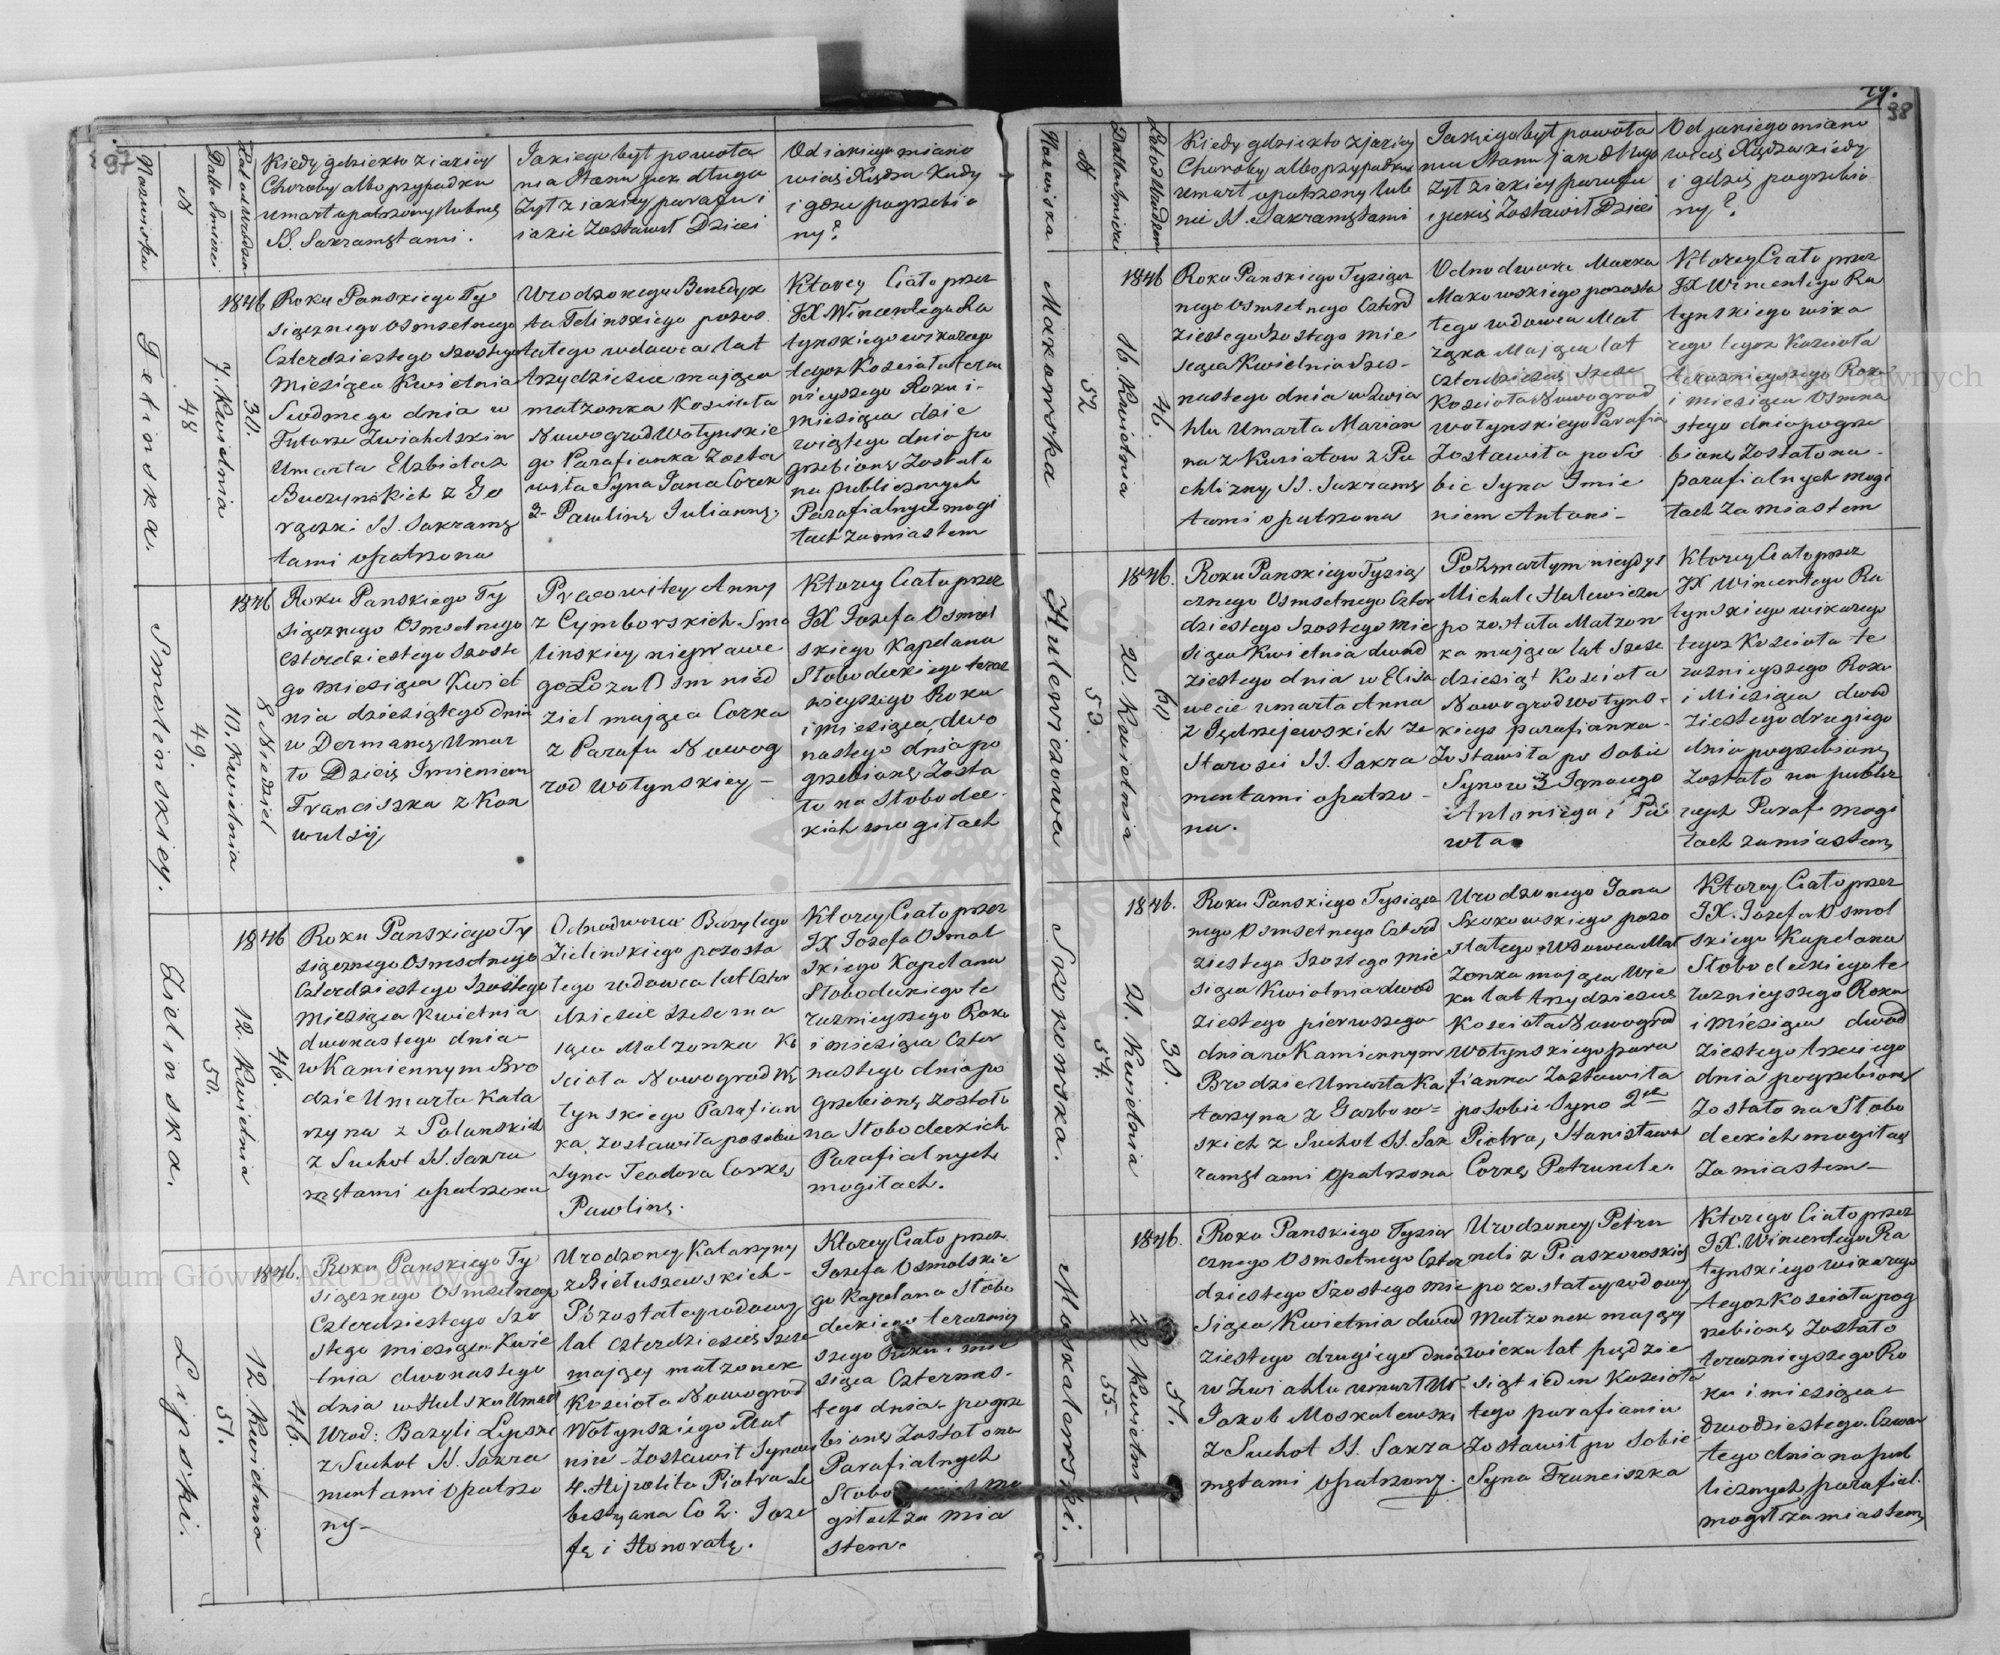 97
Nazwiska
N
Data Smierci
Lat od urodzen
Kiedy gdzie kto z jakiey
Choroby albo przypadku
umarł opatrzony lub nie
SS. Sakramętami.
Jakiego był powoła
nia Stanu jak długo
Żył z jakiey parafii i
jakie Zostawił Dzieci
Od jakiego miano
wicie Xiędza kiedy
i gdzie pogrzebio
ny?
Felinska.
48
7. Kwietnia
30.
1846
Roku Panskiego Ty
siącznego Osmsetnego
Czterdziestego szostego
Miesiąca Kwietnia
Siodmego dnia w
Futorze Zwiahelskim
Umarła Elzbieta z
Buczynskich z Go
rączki SS. Sakramę
tami opatrzona
Urodzonego Benedyk
ta Felinskiego pozos
tałego wdowca lat
trzydziescie mająca
małzonka Koscioła
Nowogrod Wołynskie
go Parafianka Zosta
wiła Syna Jana Corek
2- Paulinę Juliannę.
Ktorey Ciało przez
JX Wincentego Ra
tynskiego wikarego
tegoz Koscioła teraz
nieyszego Roku i-
miesiąca dzie
wiątego dnia po
grzebionę Zostało
na publicznych
Parafialnych mogi
łach za miastem
Smolinskiey.
49.
10. Kwietnia
8 Niedziel
1846
Roku Panskiego Ty
siącznego Osmsetnego
czterdziestego szoste
go miesiąca Kwiet
nia dziesiątego dnia
w Dermanę Umar
ło Dziecię Imieniem
Franciszka z Kon
wulsij
Pracowitey Anny
z Cymborskich Smo
linskiey niepra­we
go Łoza Osm nied
ziel mająca Corka
z Parafii Nowog
rod Wołynskiey-
Ktorey Ciało przez
JX Jozefa Osmol
skiego Kapelana
Słobodeckiego teraz
nieyszego Roku
i miesiąca dwo
nastego dnia po
grzebionę Zosta
ło na Słobodec-
kich mogiłach
Zielinska.
50.
12. Kwietnia
46.
1846
Roku Panskiego Ty
siącznego Osmsetnego
Czterdziestego Szostego
Miesiąca Kwietnia
dwonastego dnia-
w Kamiennym Bro
dzie Umarła Kata
rzyna z Polanskich
z Suchot SS. Sakra
mętami opatrzona
Odnodworca Bazylego
Zielinskiego pozosta
łego wdowca lat Czter
dziescie szesc ma
jąca Małzonka Ko
scioła Nowogrod Wo
łynskiego Parafian
ka, zostawiła po sobie
Syna Teodora Corkę
Pawlinę.
Ktorey Ciało przez
JX Jozefa Osmol
skiego Kapelana
Słobodeckiego te
raznieyszego Roku
i miesiąca Czter
nastego dnia po
grzebionę zostało
na Słobodeckich
Parafialnych
mogiłach.
Lipski.
51.
12. Kwietnia
46.
1846.
Roku Panskiego Ty
siącznego Osmsetnego
Czterdziestego Szo
stego miesiąca Kwie
tnia dwonastego
dnia w Hulsku Umarł
Urod: Bazyli Lipski
z Suchot SS. Sakra
mentami opatrzo
ny-
Urodzoney Katarzyny
z Biełuszewskich-
Pozostałey wdowy
lat czterdziescie szesc
mający małzonek
Koscioła Nowogrod
Wołynskiego Paraf
nin- Zostawił Synow
4. Hipolita Piotra Se
bestyana Co 2. Joze
fę i Honoratę.
Ktorey Ciało przez
Jozefa Osmolskie
go Kapelana Słobo
deckiego terazniey
szego Roku i mie
siąca Czternas-
tego dnia pogrze
bionę Zostało na
Parafialnych
mo
giłach za mia
stem.
38
Nazwiska
N
Data Smierci
Lat od Urodzen
Kiedy gdzie kto z jakiey
Choroby albo przypadku
umarł opatrzony lub
nie SS. Sakramętami
Jakiego był powoła
nia Stanu jak długo
Żył z jakiey parafii
i jakie Zostawił Dzieci
Od jakiego miano
wicie Xiędza kiedy
i gdzie pogrzebio
ny?
Makowska
52
16. Kwietnia
46.
1846
Roku Panskiego Tysiącz
nego Osmsetnego Czterd
ziestego Szostego mie
siąca Kwietnia Szes-
nastego dnia w Zwia
hlu Umarła Marian
na z Kuriatow z Pu
chlizny SS. Sakramę
tami opatrzona
Odnodworca Marka
Makowskiego pozosta
łego wdowca Mał
ząka Mająca lat
czterdziescie szesc
Koscioła Nowograd
wołynskiego Parafia
Zostawiła po So
bie Syna Imie
niem Antoni-
Ktorey Ciało przez
JX Wincentego Ra
tynskiego wika
rego tegoz Koscioła
teraznieyszego Roku
i miesiąca Osmna
stego dnia pogrze
bionę Zostało na-
parafialnych mogi
łach za miastem
Hulewiczowa
53.
20. Kwietnia
60
1846.
Roku Panskiego Tysią
cznego Osmsetnego Czter
dziestego Szostego mie
siąca Kwietnia dwud
ziestego dnia w Eliza
wecie umarła Anna
z Jędrzejewskich ze
Starosci SS. Sakra
mentami opatrzo-
na.
Po Zmarłym niegdys
Michale Hulewiczu
pozostała Małzon
ka mająca lat szesc
dziesiąt Koscioła
Nowogrod wołyns-
kiego parafianka-
Zostawiła po Sobie
Synow 3 Ignacego
Antoniego i Pa
wła
Ktorey Ciało przez
JX Wincentego Ra
tynskiego wikarego
tegoz Koscioła te
raznieyszego Roku
i Miesiąca dwud
ziestego drugiego
dnia pogrzebionę
Zostało na publicz
nych Paraf mogi
łach za miastem
Srokowska.
54.
21. Kwietnia
30.
1846.
Roku Panskiego Tysiącz
nego Osmsetnego Czterd
ziestego Szostego mie
siąca Kwietnia dwud
ziestego pierwszego
dnia w Kamiennym
Brodzie Umarła Ka
tarzyna z Garbow=
skich z Suchot SS. Sak
ramętami opatrzona
Urodzonego Jana
Srokowskiego pozo
stałego Wdowca Mał
zonka mająca Wie
ku lat trzydziescie
Koscioła Nowogrod
Wołynskiego para
fianka Zostawiła
po Sobie Syno 2ch
Piotra, Stanisława
Corkę Petrunele.
Ktorey Ciało przez
JX. Jozefa Osmol
skiego Kapelana
Słobodeckiego te
raznieyszego Roku
i miesiąca dwud
ziestego trzeciego
dnia pogrzebionę
Zostało na Słobo
deckich mogiłach
Za miastem-
Moskalewski.
55-
22 Kwietnia
51.
1846.
Roku Panskiego Tysią
cznego Osmsetnego Czter
dziestego Szostego mie
siąca Kwietnia dwud
ziestego drugiego dnia
w Zwiahlu umarł Ur-
Jakob Moskalewski
z Suchot SS. Sakra
mętami opatrzony.
Urodzoney Petru
neli z Piaskowskich
pozostałey wdowy
Małzonek mający
wieku lat pięćdzie
siąt ieden Koscioła
tego parafianin
Zostawił po Sobie
Syna Franciszka
Ktorego Ciało przez
JX. Wincentego Ra
tynskiego wikarego
tegoz Koscioła pog
rzebionę Zostało
teraznieyszego Ro
ku i miesiąca
dwudziestego Czwar
tego dnia na pub
licznych parafial.
mogił za miastem
Archiwum Główne Akt Dawnych
Archiwum Główne Akt Dawnych